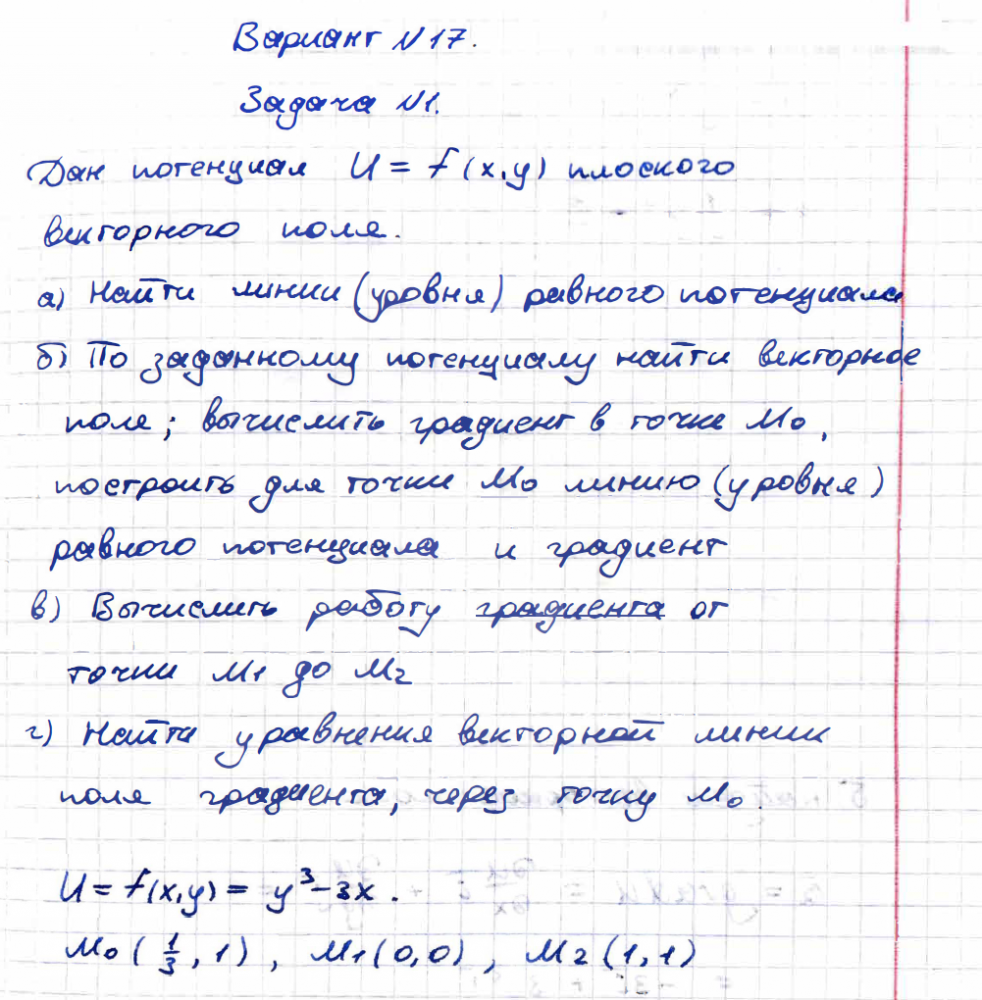 Вариант №17.
Задача №1.
Дан потенциал U = f(x,y) плоского
векторного поля.
а) Найти линии (уровня) равного потенциала
б) По заданному потенциалу найти векторное
поле; вычислить градиент в точке M₀,
построить для точки M₀ линию (уровня)
равного потенциала и градиент
в) Вычислить работу градиента от
точки M₁ до M₂
г) Найти уравнения векторной линии
поля градиента, через точку M₀.
U = f(x,y) = y³ - 3x.
M₀ (1/3, 1), M₁(0,0), M₂(1,1)